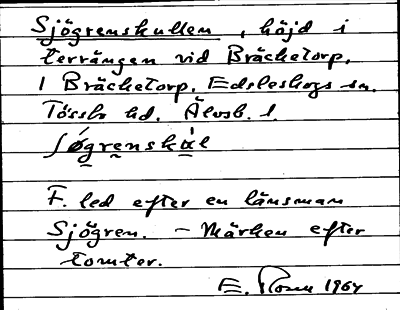 Sjögrenskullen, höjd i
terrängen vid Bräcketorp.
1 Bräcketorp. Edsleskogs sn.
Tössbo hd. Älvsb. l.
ʃǿgrenskúl
F. led efter en länsman
Sjögren. – Märken efter
tomter.
E. Rosen 1964